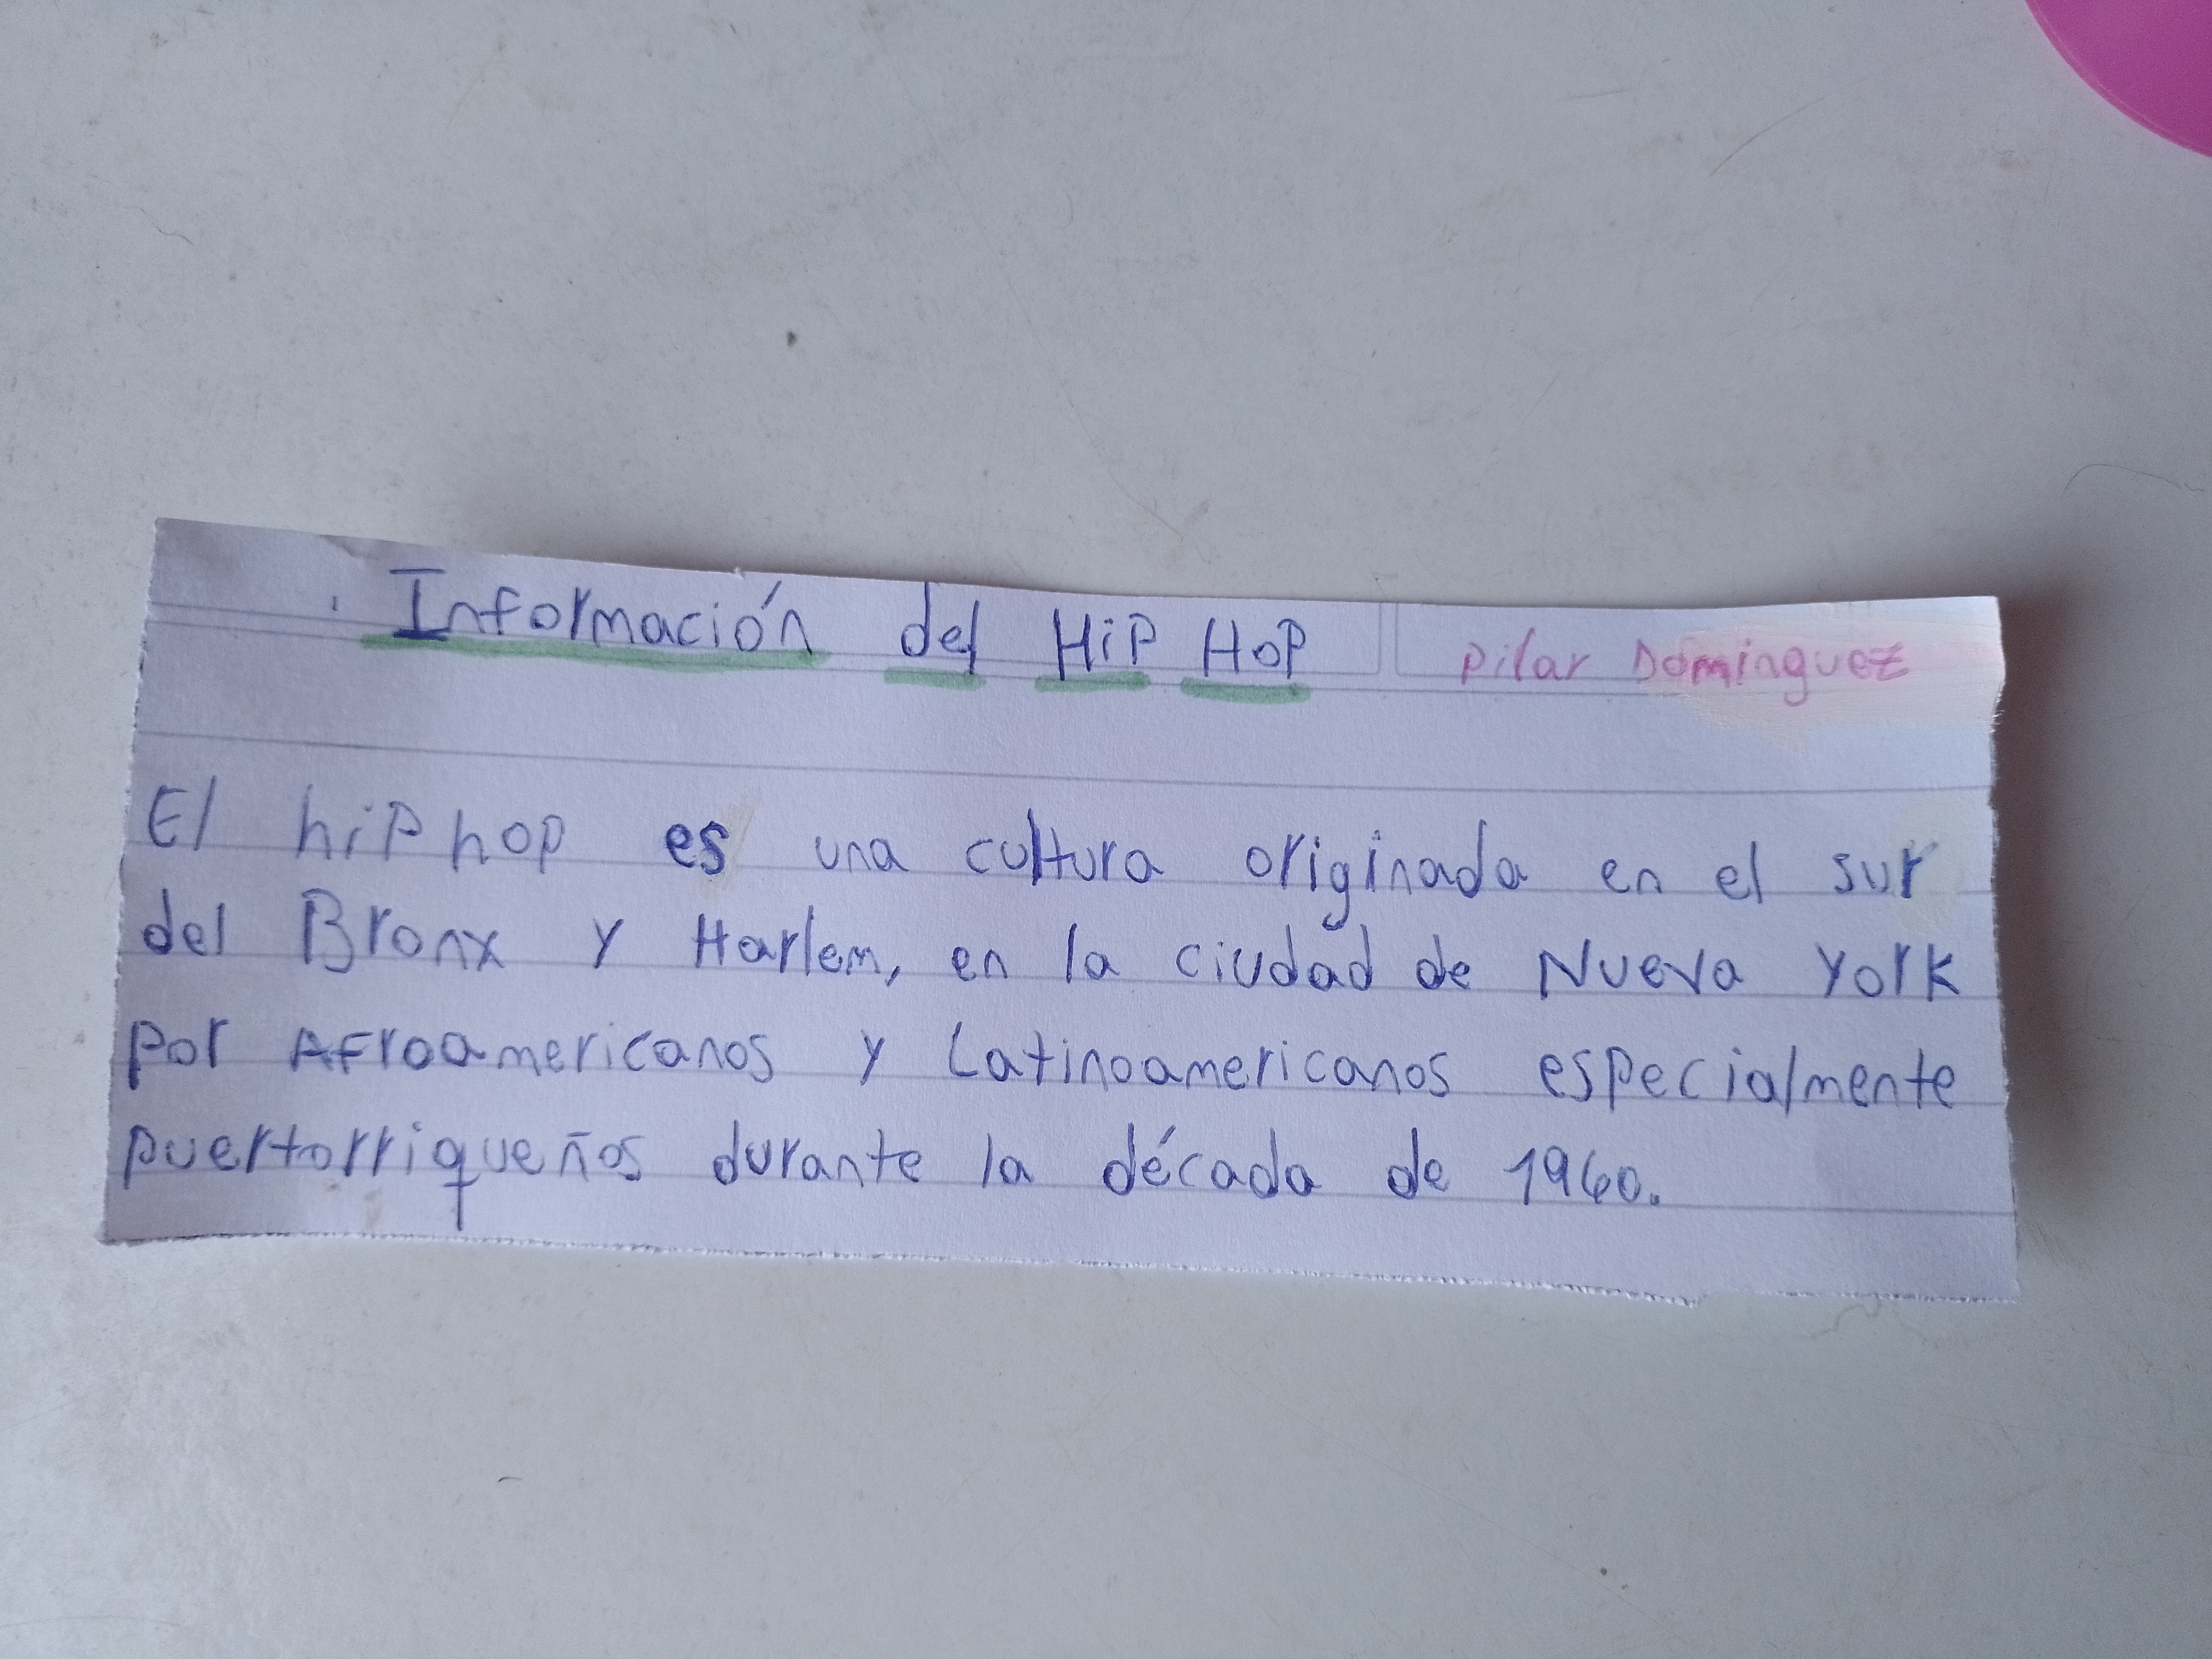 Información del HiP HoP Pilar Dominguez
El hiphop es una cultura originada en el sur
del Bronx y Harlem, en la ciudad de Nueva York
por Afroamericanos y Latinoamericanos especialmente
puertorriqueños durante la década de 1960.